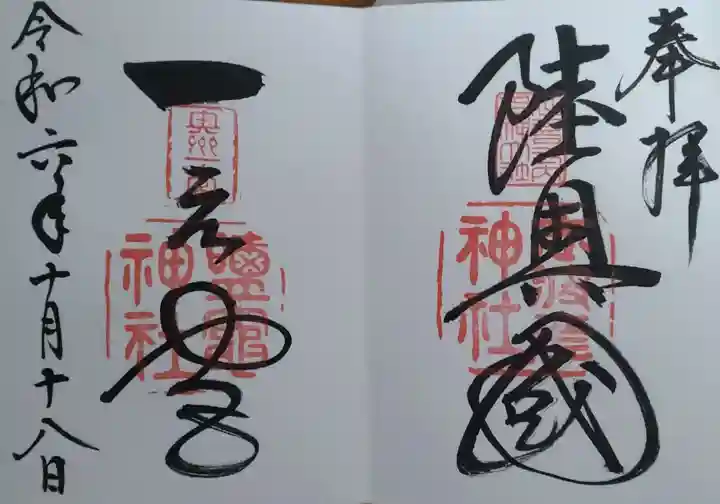 奉拝
陸奥國
志波彦
神社
一之宮
奥州一宮
鹽竈
神社
令和六年十月十八日